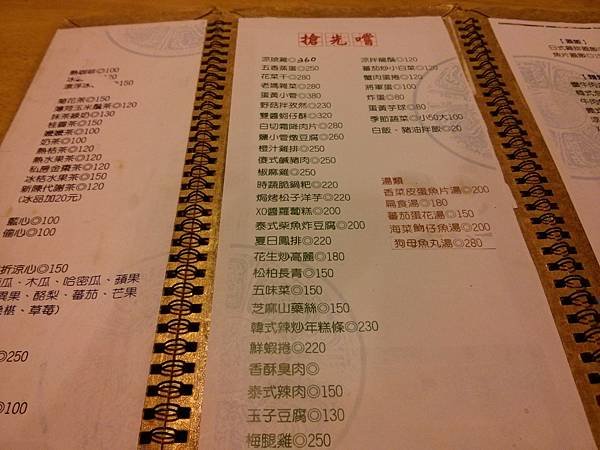 熱咖啡◎100
菊花茶◎120
薄荷玉米鬚茶◎120
抹茶綠奶◎130
桂圓茶◎150
奶茶◎100
熱桔茶◎120
熱水果茶◎120
私房金棗茶◎120
冰桔水果茶◎150
新陳代謝茶◎120
(冰品加20元)
藍心◎100
偷心◎100
折涼心◎150
瓜、木瓜、哈密瓜、蘋果
異果、酪梨、番茄、芒果
桑椹、草莓)
◎250
◎100
搶先嚐
涼拋雞◎260
五香蒸蛋◎250
花菜干◎280
老媽雜菜◎380
蛋黃小管◎380
野菇拌孜然◎230
雙醬蚵仔酥◎320
白切霜降肉片◎280
鹽小管燉豆腐◎250
橙汁雞排◎250
傻式鹹豬肉◎250
椒麻雞◎250
時蔬脆鍋粑◎220
焗烤松子洋芋◎220
XO醬蘿蔔糕◎200
泰式柴魚炸豆腐◎200
夏日鳳排◎220
花生炒高麗◎180
松柏長青◎150
五味菜◎150
芝麻山藥絲◎150
韓式辣炒年糕條◎230
鮮蝦捲◎220
香酥臭肉◎
泰式辣肉◎150
玉子豆腐◎130
梅腿雞◎250
涼拌龍鬚◎120
番茄炒小白菜◎120
蟹肉蛋捲◎120
將軍蛋◎100
炸蛋◎80
蛋黃芋球◎80
季節蔬菜◎小50大100
白飯、豬油拌飯◎20
湯類
香菜皮蛋魚片湯◎200
扁食湯◎180
番茄蛋花湯◎150
海菜魩仔魚湯◎200
狗母魚丸湯◎280